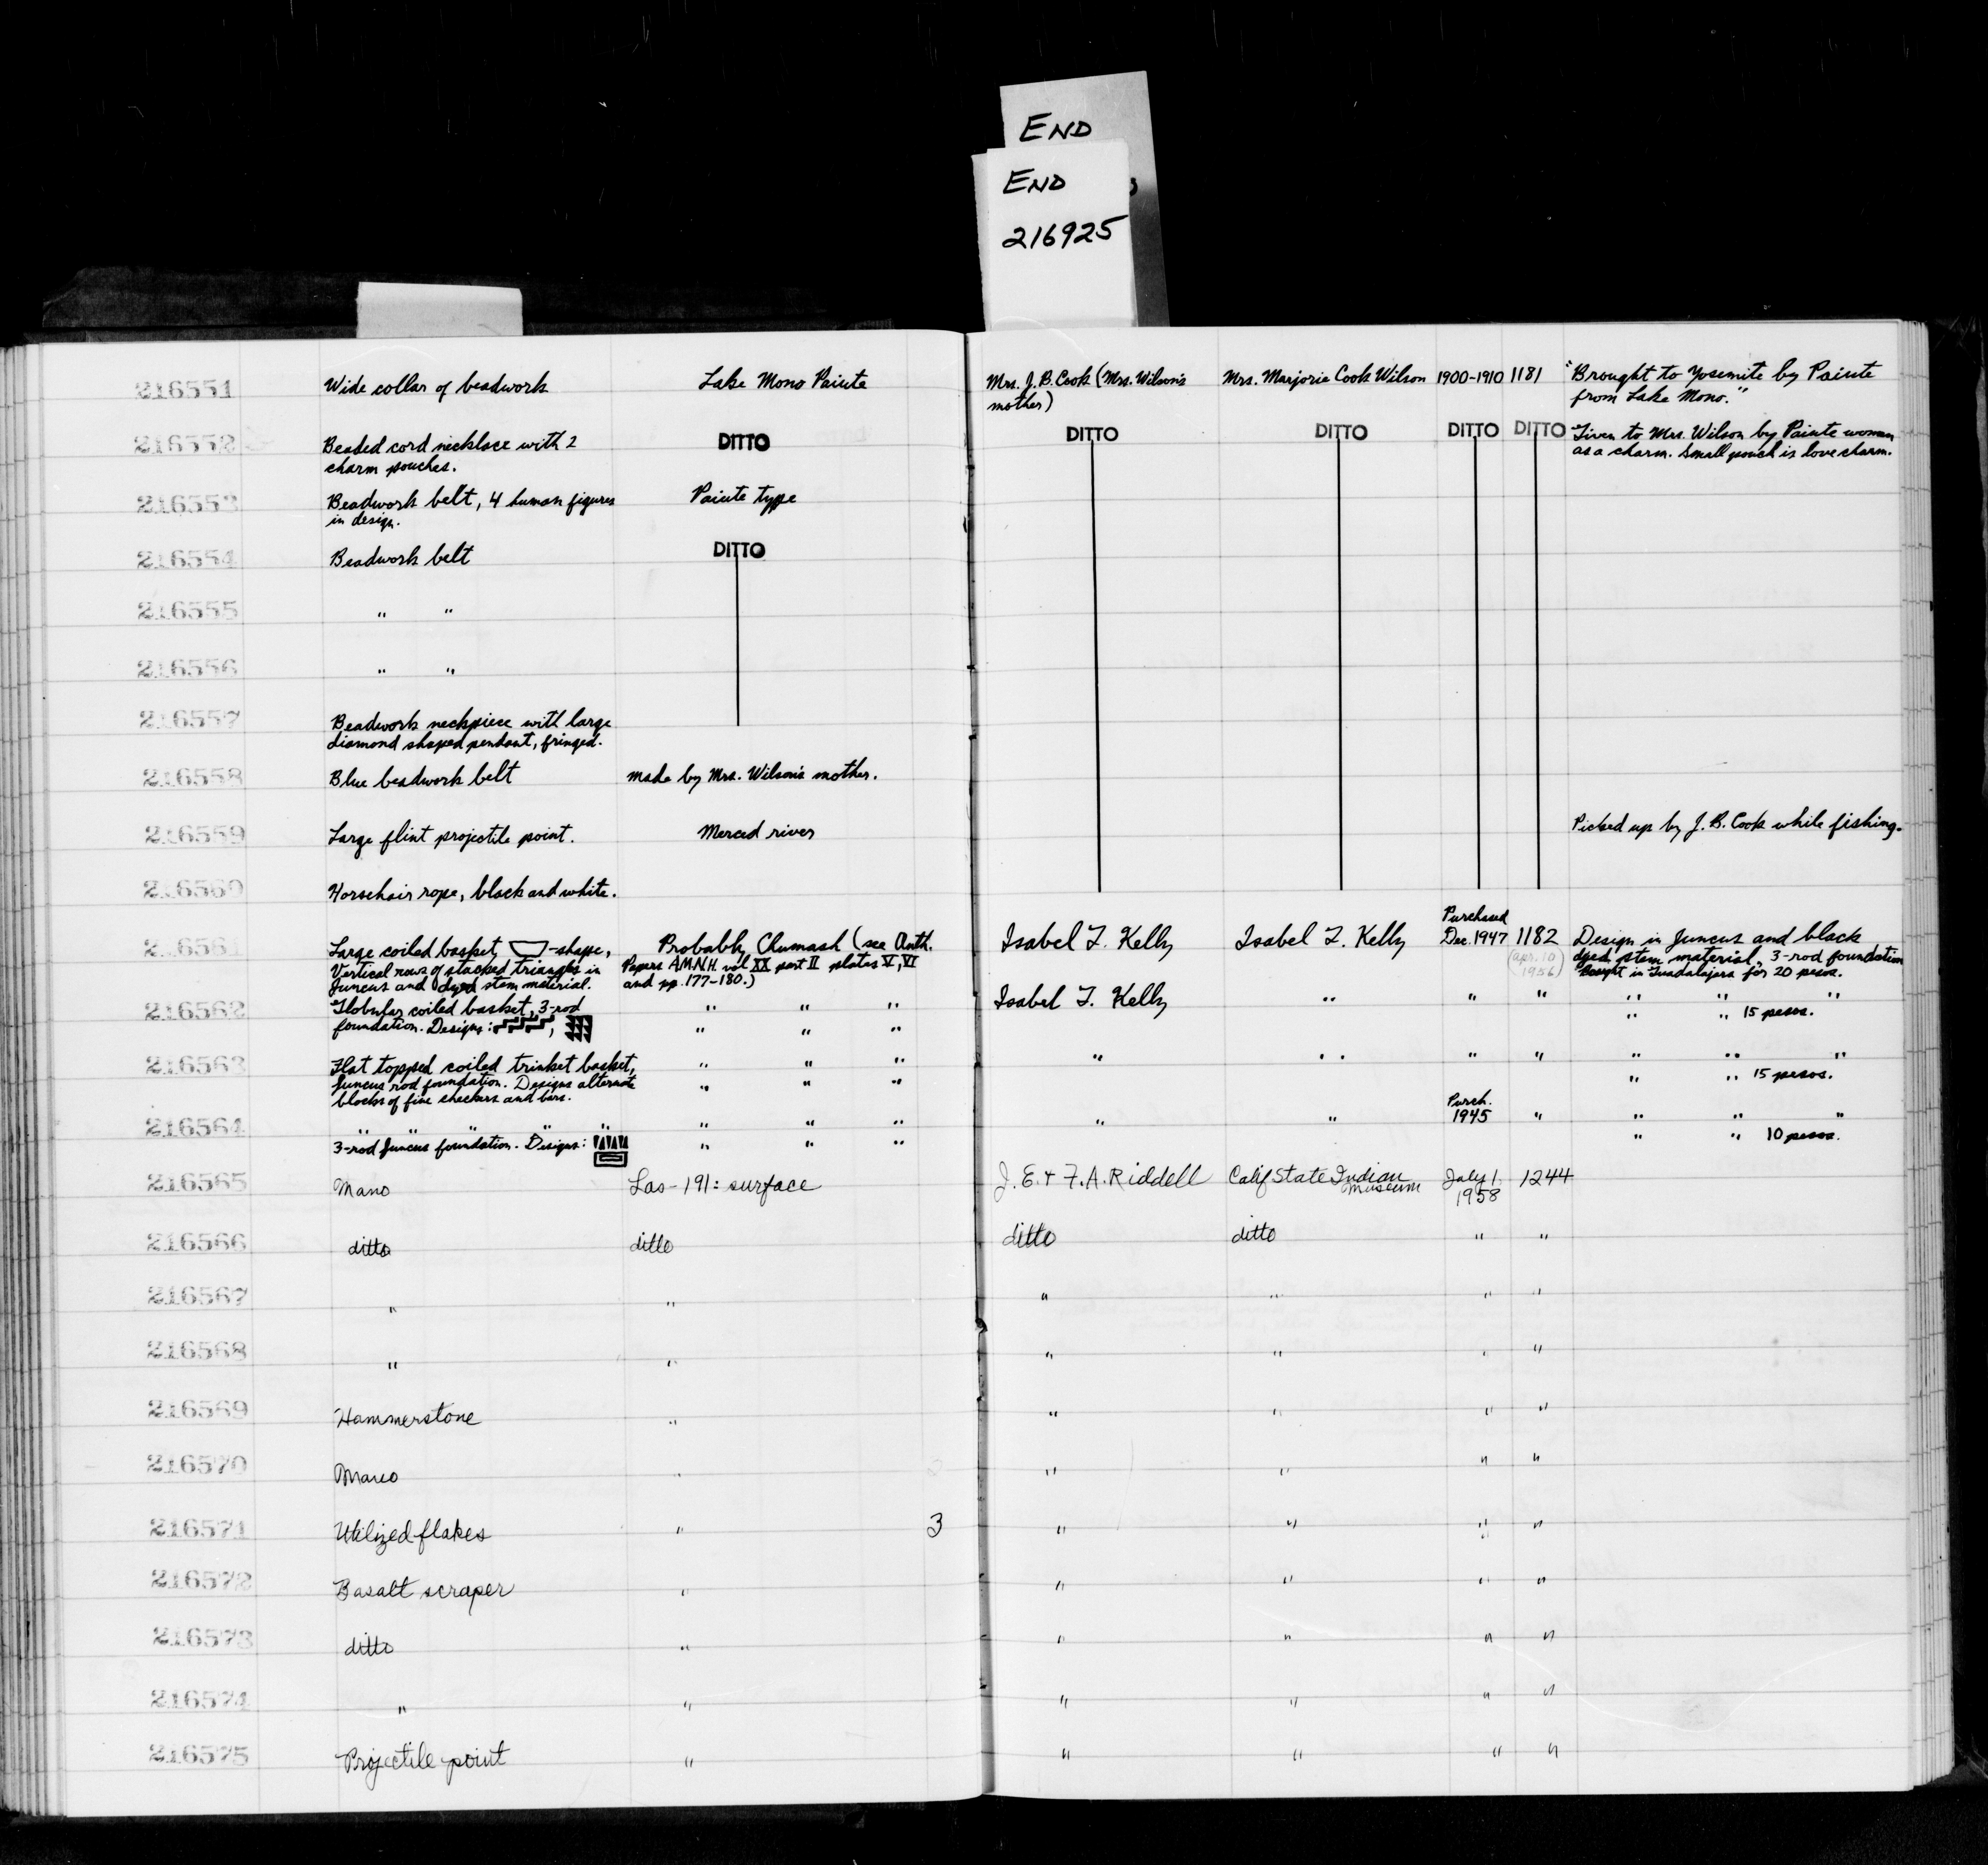 END
END
216925
216551 Wide collar of beadwork Lake Mono Paiute Mrs. J. B. Cook (Mrs. Wilson's Mrs. Marjorie Cook Wilson 1900-1910 1181 "Brought to Yosemite by Paiute
mother) from Lake Mono."
216552 Beaded cord necklace with 2 DITTO DITTO DITTO DITTO DITTO Given to Mrs. Wilson by Paiute woman
charm pouches. as a charm. Small pouch is love charm.
216553 Beadwork belt, 4 human figures Paiute type
in design.
216554 Beadwork belt DITTO
216555 " "
216556 " "
216557 Beadwork neckpiece with large
diamond shaped pendant, fringed.
216558 Blue beadwork belt made by Mrs. Wilson's mother.
216559 Large flint projectile point. Merced river Picked up by J. B. Cook while fishing.
216560 Horsehair rope, black and white.
Purchased
216561 Large coiled basket, -shape, Probably Chumash (see Anth. Isabel T. Kelly Isabel T. Kelly Dec. 1947 1182 Design in Juncus and black
Vertical rows of stacked triangles in Papers A.M.N.H. vol XX part II plates V, VI (Apr. 10 dyed stem material, 3-rod foundation
Juncus and dyed stem material. and pp. 177-180.) 1956) Bought in Guadalajara for 20 pesos.
216562 Globular coiled basket, 3-rod " " " Isabel T. Kelly " " " " " "
foundation. Designs: , " " " " " 15 pesos.
216563 Flat topped coiled trinket basket, " " " " " " " " " "
Juncus rod foundation. Designs alternate " " " " " 15 pesos.
blocks of fine checkers and bars.
Purch.
216564 " " " " " " " " " " 1945 " " " "
3-rod Juncus foundation. Designs: " " " " " 10 pesos.
216565 Mano Las-191: surface J. E. + F. A. Riddell Calif State Indian July 1, 1244
Museum 1958
216566 ditto ditto ditto ditto " "
216567 " " " " " "
216568 " " " " " "
216569 Hammerstone " " " " "
216570 Mano " " " " "
216571 Utilized flakes " 3 " " " "
216572 Basalt scraper " " " " "
216573 ditto " " " " "
216574 " " " " " "
216575 Projectile point " " " " "